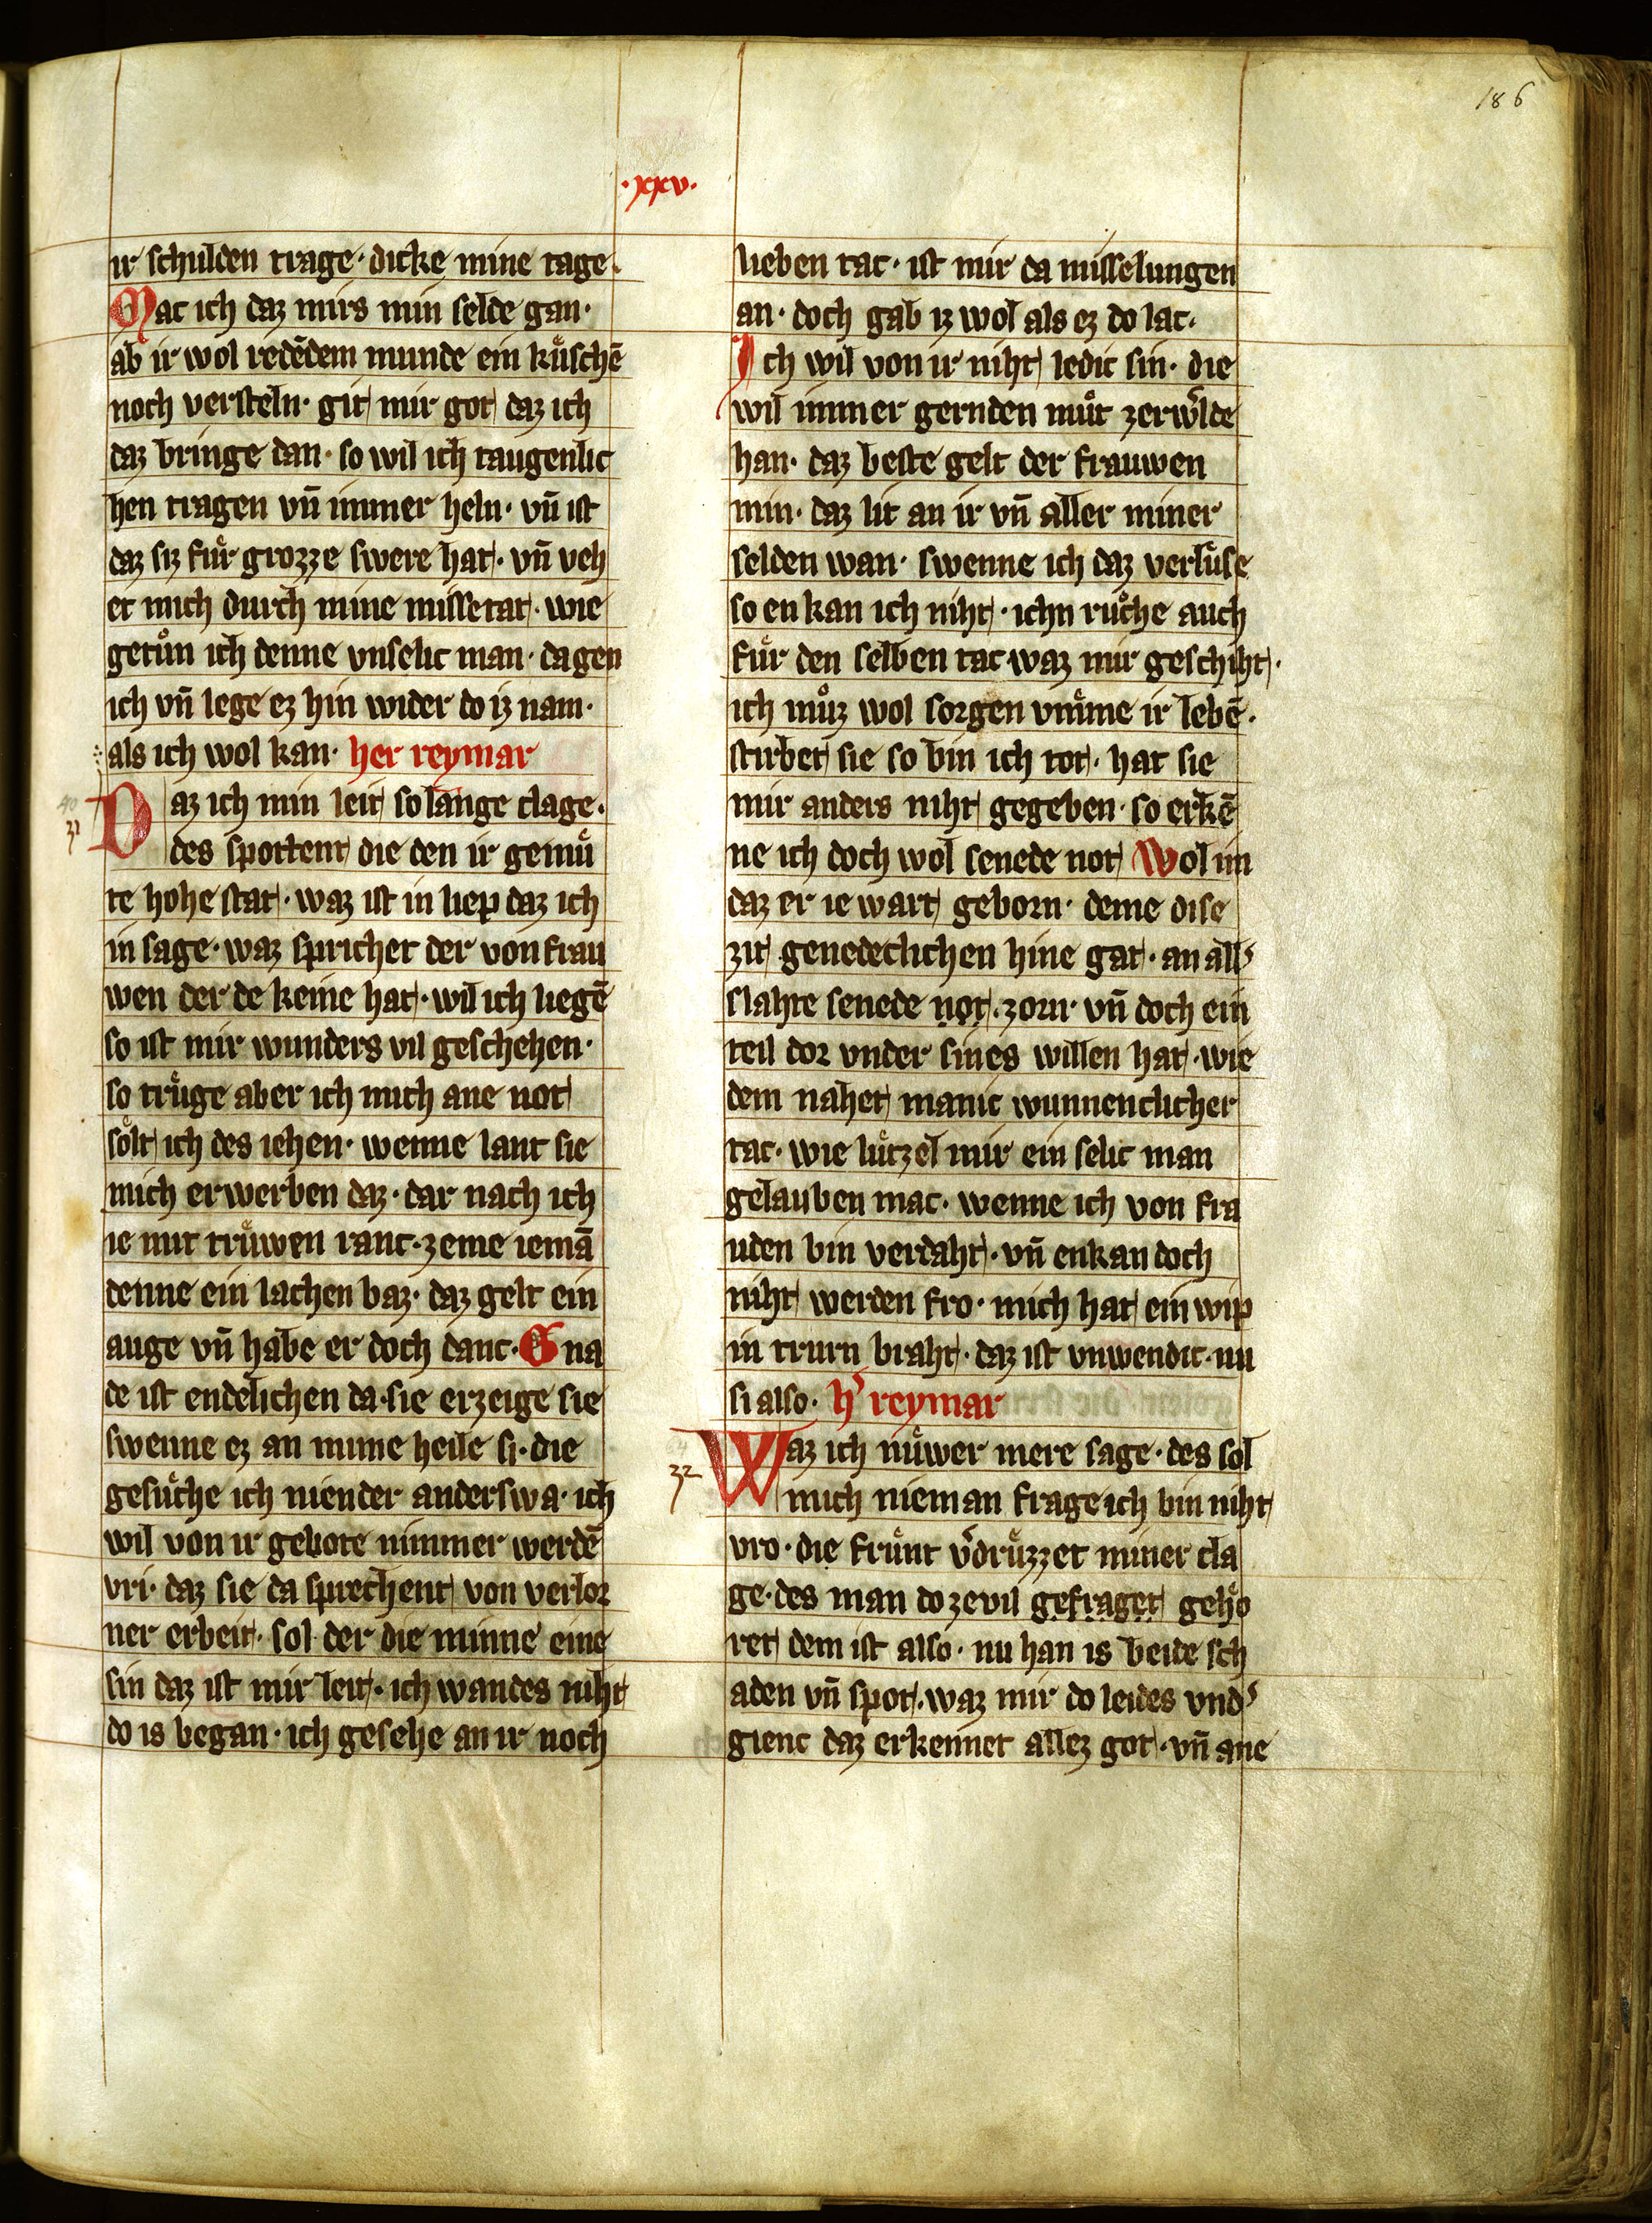 186
·xxxv·
ir schulden trage· dicke mine tage·
Mac ich daz mirs min selde gan·
ab ir wol redēdem munde ein kuͤschē
noch versteln· git mir got daz ich
daz bringe dan· so wil ich taugenlic
hen tragen vn̄ immer heln· vn̄ ist
daz siz fuͤr grozze swere hat· vn̄ veh
et mich durch mine missetat· wie
getuͦn ich denne vnselic man· da gen
ich vn̄ lege ez hin wider do iz nam·
als ich wol kan· her reymar
Daz ich min leit so lange clage·
31
des spottent die den ir gemuͤ
te hohe stat· waz ist in liep daz ich
in sage· waz sprichet der von frau
wen der de keine hat· wil ich liegē
so ist mir wunders vil geschehen·
so truͤge aber ich mich ane not
soͤlt ich des iehen· wenne lant sie
mich erwerben daz· dar nach ich
ie mit truͤwen ranc· zeme iemā
denne ein lachen baz· daz gelt ein
auge vn̄ habe er doch danc· Gna
de ist endelichen da· sie erzeige sie
swenne ez an mime heile si· die
gesuͤche ich niender anderswa· ich
wil von ir gebote nimmer werdē
vri· daz sie da sprechent von verlor
ner erbeit· sol der die minne eine
sin daz ist mir leit· ich wandes niht
do is began· ich gesehe an ir noch
lieben tac· ist mir da misselungen
an· doch gab iz wol als ez do lac·
Ich wil von ir niht ledic sin· die
wil immer gernden muͦt zer w̄lde
han· daz beste gelt der frauwen
min· daz lit an ir vn̄ aller miner
selden wan· swenne ich daz verluͤse
so en kan ich niht· ichn ruͦche auch
fuͤr den selben tac waz mir geschiht·
ich muͦz wol sorgen vmme ir lebē·
stirbet sie so bin ich tot· hat sie
mir anders niht gegeben· so erkē
ne ich doch wol senede not Wol im
daz er ie wart geborn· deme dise
zit genedeclichen hine gat· an all'
slahte senede not· zorn· vn̄ doch ein
teil dor vnder sines willen hat· wie
dem nahet manic wunnenclicher
tac· wie luͤtzel mir ein selic man
gelauben mac· wenne ich von fra
uden bin verdaht· vn̄ enkan doch
niht werden fro· mich hat ein wip
in trurn braht· daz ist vnwendic· nu
si also· h' reymar
Waz ich nuͤwer mere sage· des sol
32
mich nieman frage ich bin niht
vro· die fruͤnt v̄druͤzzet miner cla
ge· des man do ze vil gefraget gehoͤ
ret dem ist also· nu han is beide sch
aden vn̄ spot· waz mir do leides vnd'
gienc daz erkennet allez got· vn̄ ane